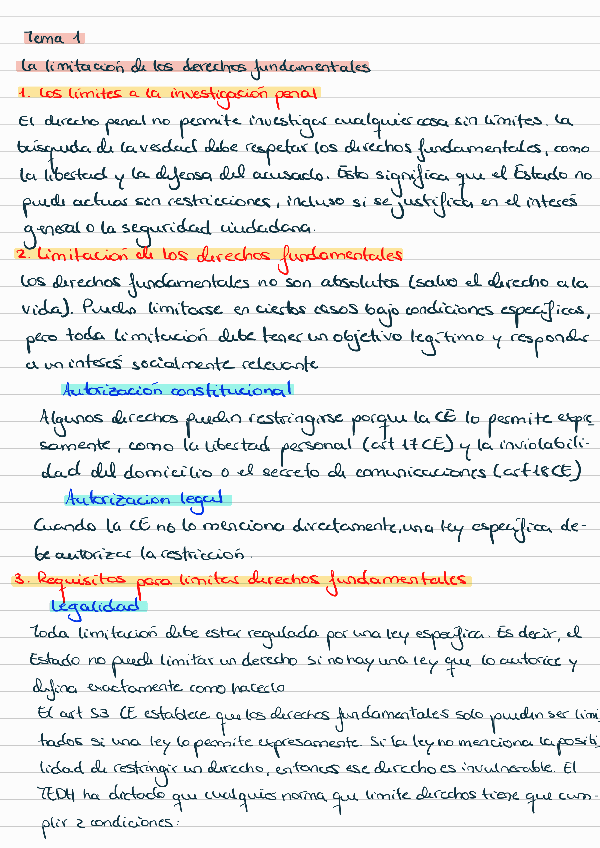 Tema 1
La limitación de los derechos fundamentales
1. Los límites a la investigación penal
El derecho penal no permite investigar cualquier cosa sin límites. La
búsqueda de la verdad debe respetar los derechos fundamentales, como
la libertad y la defensa del acusado. Esto significa que el Estado no
puede actuar sin restricciones, incluso si se justifica en el interés
general o la seguridad ciudadana.
2. Limitación de los derechos fundamentales
Los derechos fundamentales no son absolutos (salvo el derecho a la
vida). Pueden limitarse en ciertos casos bajo condiciones específicas,
pero toda limitación debe tener un objetivo legítimo y responder
a un interés socialmente relevante
Autorización constitucional
Algunos derechos pueden restringirse porque la CE lo permite expre
samente, como la libertad personal (art 17 CE) y la inviolabili-
dad del domicilio o el secreto de comunicaciones (art 18 CE)
Autorizacion legal
Cuando la CE no lo menciona directamente, una ley específica de-
be autorizar la restricción.
3. Requisitos para limitar derechos fundamentales
Legalidad
Toda limitación debe estar regulada por una ley específica. Es decir, el
Estado no puede limitar un derecho si no hay una ley que lo autorice y
defina exactamente como hacerlo
El art 53 CE establece que los derechos fundamentales solo pueden ser limi
tados si una ley lo permite expresamente. Si la ley no menciona la posibi
lidad de restringir un derecho, entonces ese derecho es invulnerable. El
TEDH ha dictado que cualquier norma que limite derechos tiene que cum-
plir 2 condiciones: